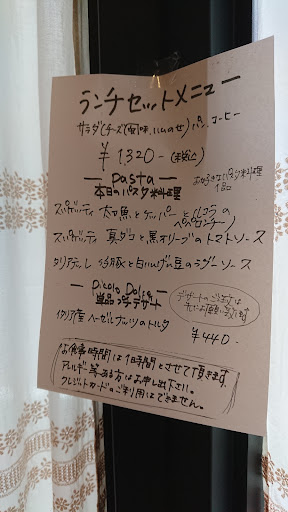 ランチセットメニュー
サラダ(チーズ風味、いんのせ) パン、コーヒー
¥1,320-(税込)
— Pasta —
本日のパスタ料理
お好きなパスタ料理
1品
スパゲッティ 太刀魚とケッパーとルッコラの
ペペロンチーノ
スパゲッティ 真ダコと黒オリーブのトマトソース
タリアテッレ 仔豚と白いんげん豆のラグーソース
— Piccolo Dolce —
単品プチデザート
デザートのご注文は
先にお願い致します
イタリア産ヘーゼルナッツのトルタ
¥440-
お食事時間は1時間とさせて頂きます。
アレルギー等ある方はお申し出下さい。
クレジットカードのご利用はできません。